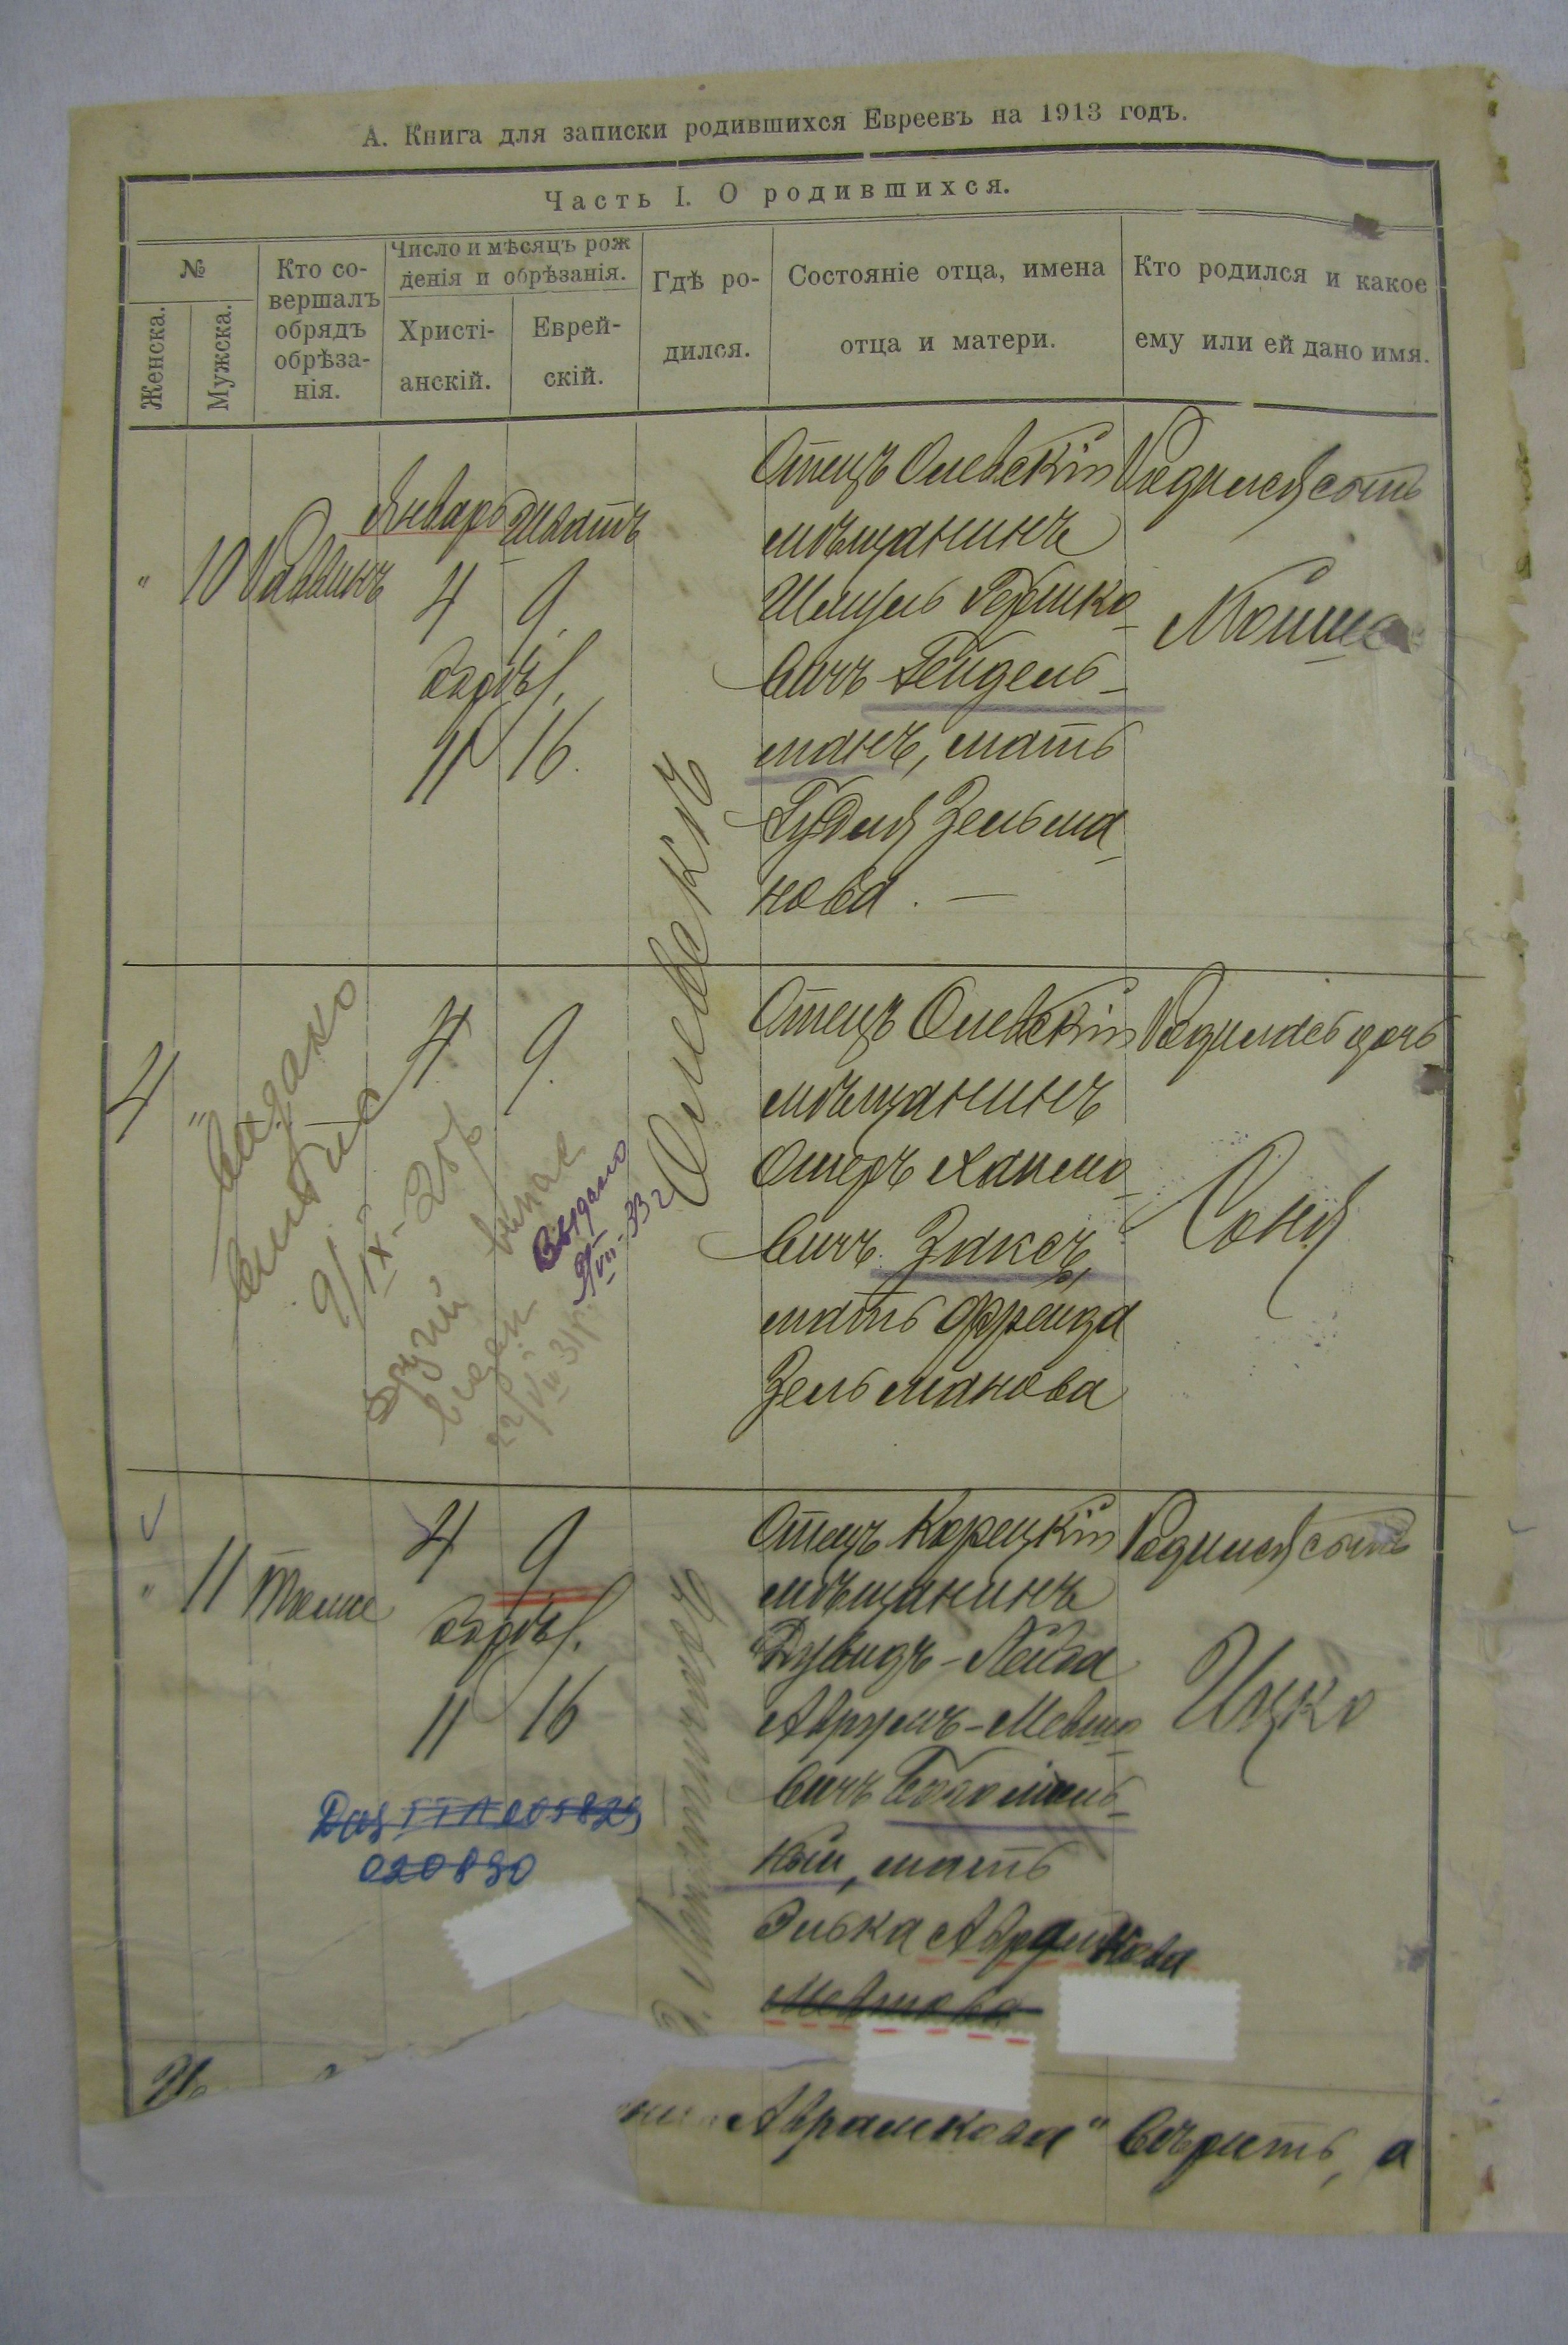 А. Книга для записки родившихся Евреевъ на 1913 годъ.
Часть I. О родившихся.
№
Женска.
Мужска.
Кто со-
вершалъ
обрядъ
обрѣза-
нія.
Число и мѣсяцъ рож
денія и обрѣзанія.
Христі-
анскій.
Еврей-
скій.
Гдѣ ро-
дился.
Состояніе отца, имена
отца и матери.
Кто родился и какое
ему или ей дано имя.
" 10 Раввинъ
Январь Шватъ
4 9.
обрѣз.
11 16.
Олевскъ
Отецъ Олевскій
мѣщанинъ
Шмуль Гершко-
вичъ Гейдель-
манъ, мать
Гудля Зельма-
нова. —
Родился сынъ
Мойше
4 "
4 9.
Выдано
9/IX-28 г.
другий
22/VII 31 р.
Выдано
9/VIII-33 г.
Отецъ Олевскій
мѣщанинъ
Ошеръ Хаимо-
вичъ Заксъ,
мать Фрейда
Зельманова
Родилась дочь
Соня
" 11 Тоже
4 9
обрѣз.
11 16
020890
Отецъ Корецкій
мѣщанинъ
Дувидъ-Лейба
Аврумъ-Мовшо-
вичъ Богомоль-
ный, мать
Элька Аврамкова
Мовшова
Родился сынъ
Ицко
Аврамкова" вѣрить, а